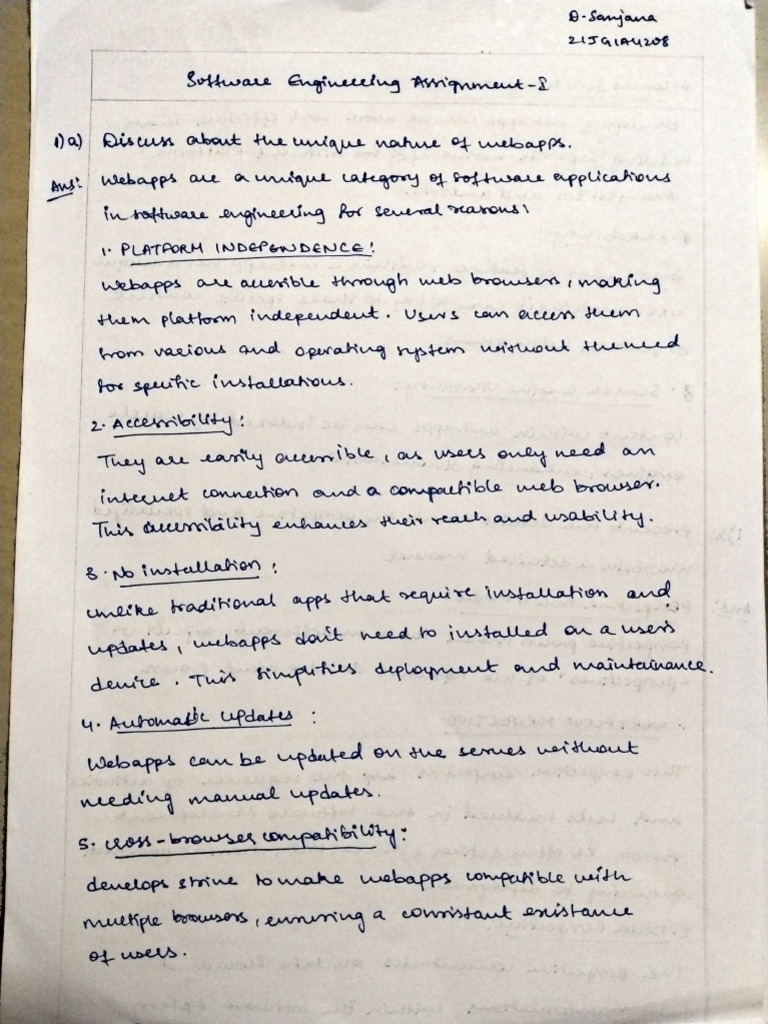 D. Sanjana
21JG1A4208
Software Engineering Assignment-I
1)a) Discuss about the unique nature of webapps.
Ans: Webapps are a unique category of software applications
in software engineering for several reasons:
1. PLATFORM INDEPENDENCE:
Webapps are accesible through web browsers, making
them platform independent. Users can access them
from various and operating system without the need
for specific installations.
2. Accessibility:
They are easily accessible, as users only need an
internet connection and a compactible web browser.
This accessibility enhances their reach and usability.
3. No installation:
unlike traditional apps that require installation and
updates, webapps don't need to installed on a user's
device. This simplifies deployment and maintainance.
4. Automatic updates :
Webapps can be updated on the server without
needing manual updates.
5. cross-browser compatibility:
develops strive to make webapps compatible with
multiple browsers, ensuring a consistant existance
of users.